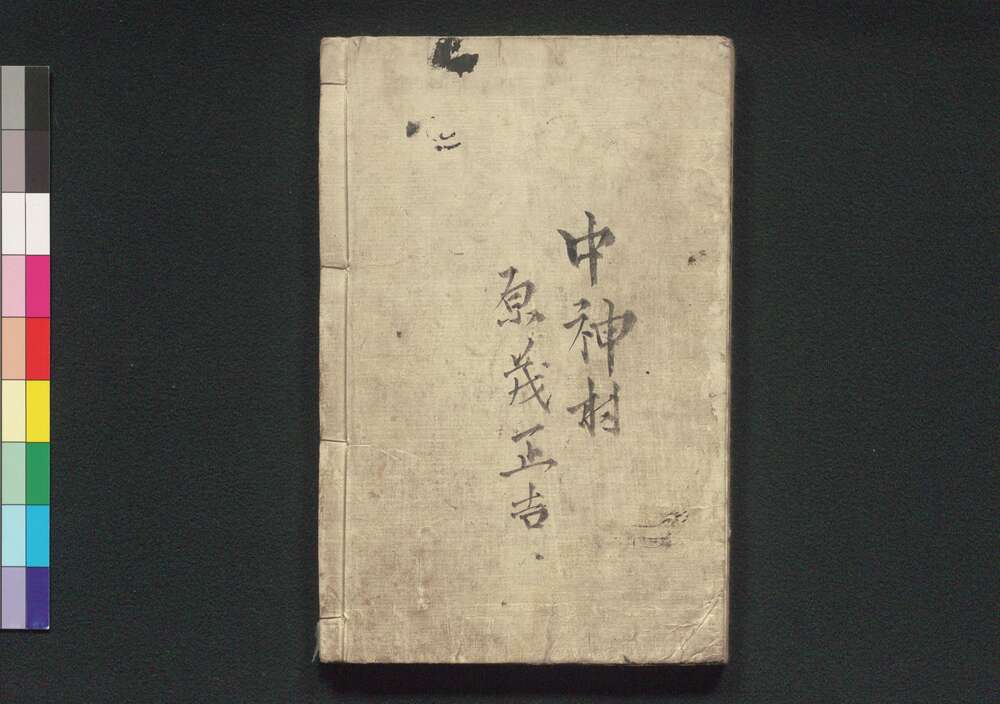 中神村
原茂正吉